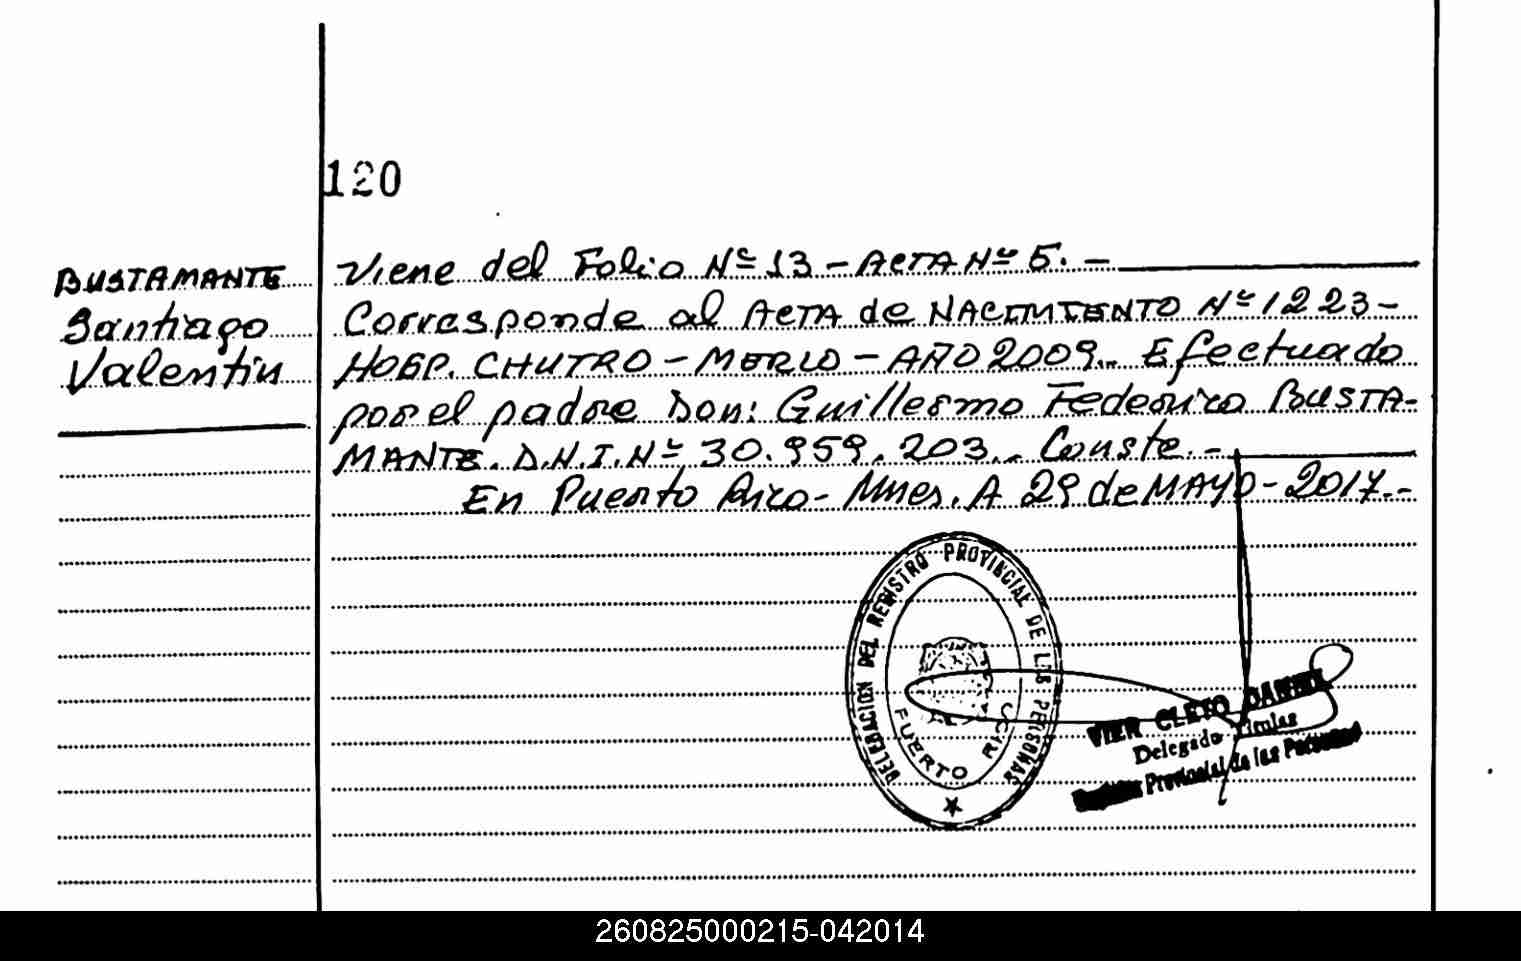 120
BUSTAMANTE
Santiago
Valentin
Viene del Folio Nº 13 - ACTA Nº 5. -
Corresponde al ACTA de NACIMIENTO Nº 1223 -
HOSP. CHUTRO - MERLO - AÑO 2009.. Efectuado
por el padre Don: Guillermo Federico BUSTA-
MANTE. D.N.I. Nº 30.959.203.. Conste. -
En Puerto Rico - Mnes. A 29 de MAYO - 2017. -
DELEGACION DEL REGISTRO PROVINCIAL DE LAS PERSONAS
PUERTO RICO
VIER CLETO DANIEL
Delegado Titular
Provincial de las Personas
260825000215-042014